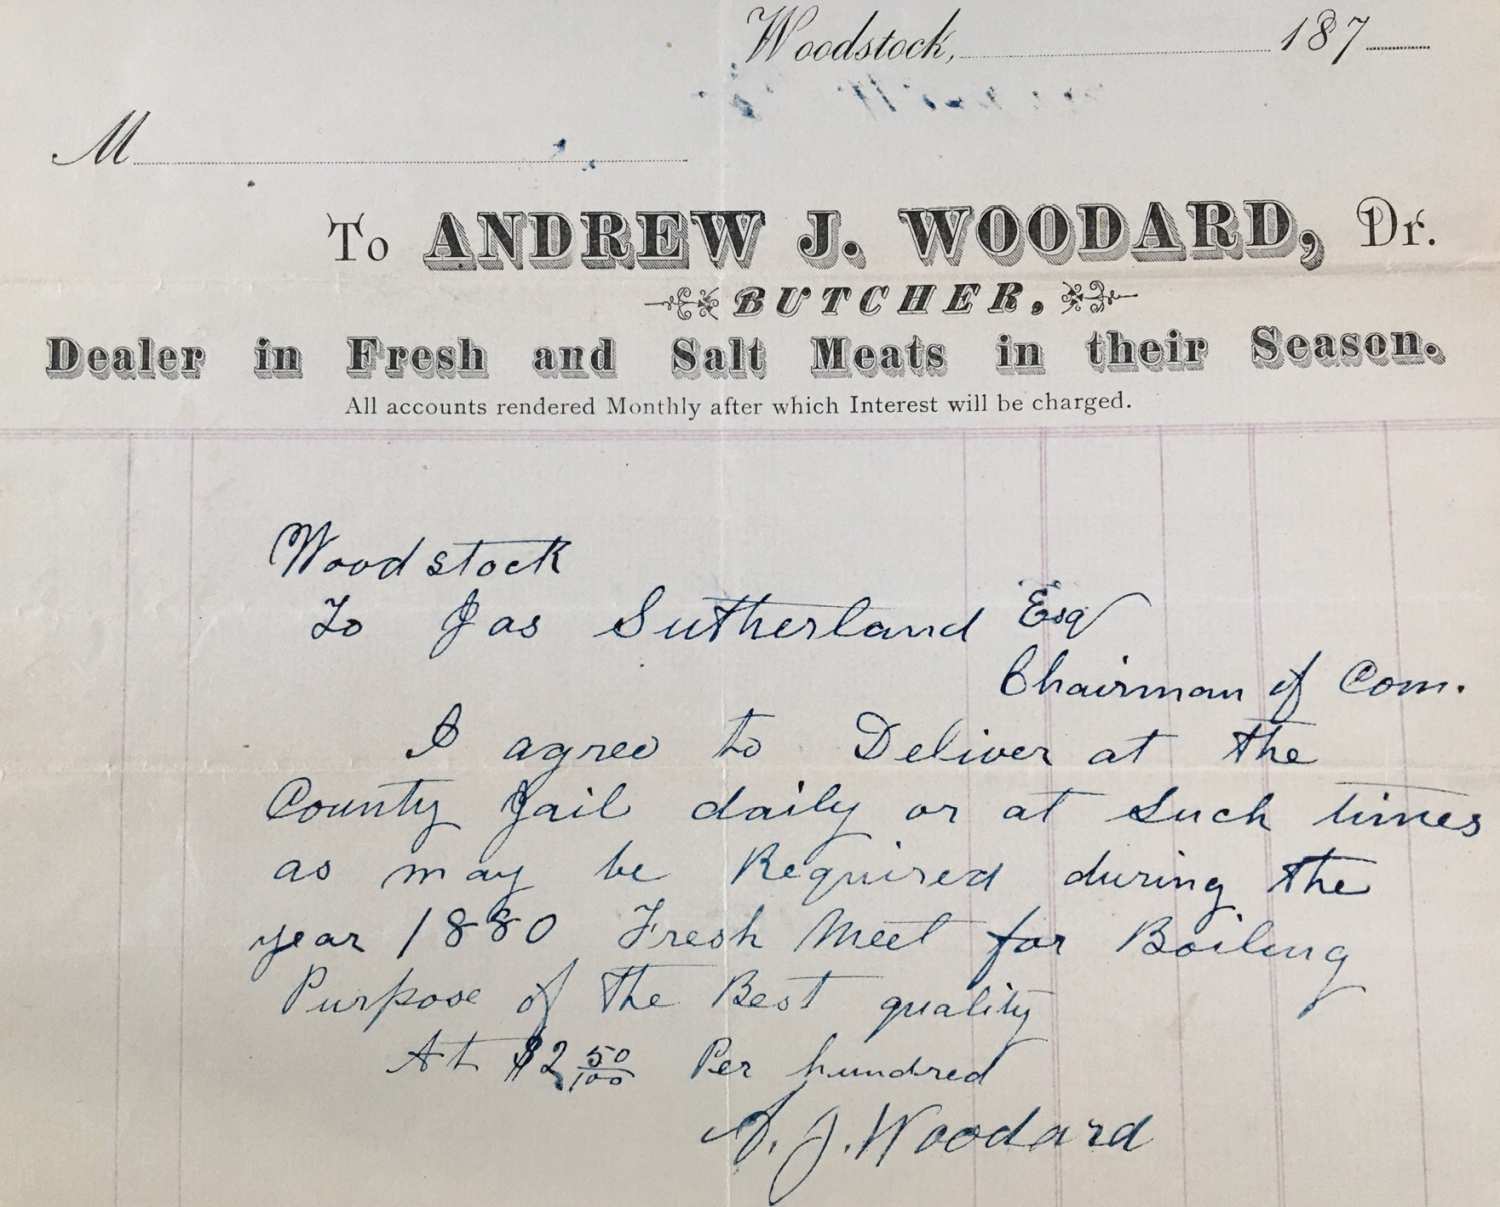 Woodstock, 187
M
To ANDREW J. WOODARD, Dr.
BUTCHER,
Dealer in Fresh and Salt Meats in their Season.
All accounts rendered Monthly after which Interest will be charged.
Woodstock
To Jas Sutherland Esq
Chairman of Com.
I agree to Deliver at the
County Jail daily or at Such times
as may be Required during the
year 1880 Fresh Meet for Boiling
Purpose of the Best quality
At $2 50/100 Per hundred
A. J. Woodard